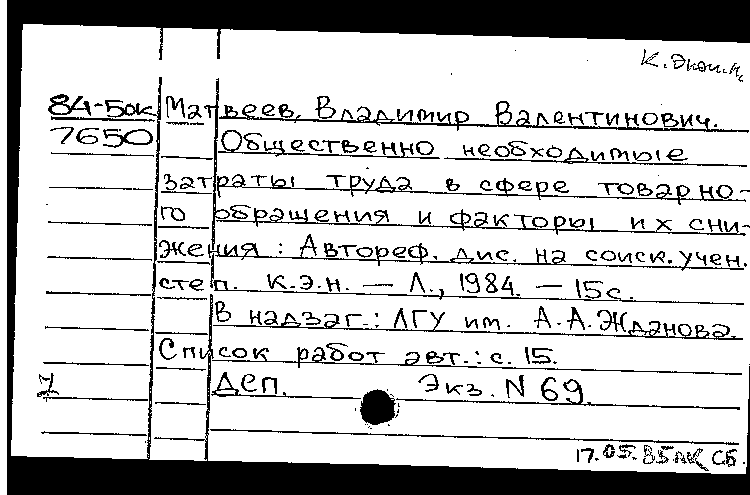 К. Экон.
84-5ок Матвеев, Владимир Валентинович.
7650 Общественно необходимые
затраты труда в сфере товарно-
го обращения и факторы их сни-
жения : Автореф. дис. на соиск. учен.
степ. к.э.н. — Л., 1984. — 15с.
В надзаг.: ЛГУ им. А.А.Жданова.
Список работ авт.: с. 15.
1 ДСП. Экз. N 69.
17.05.85 СБ.